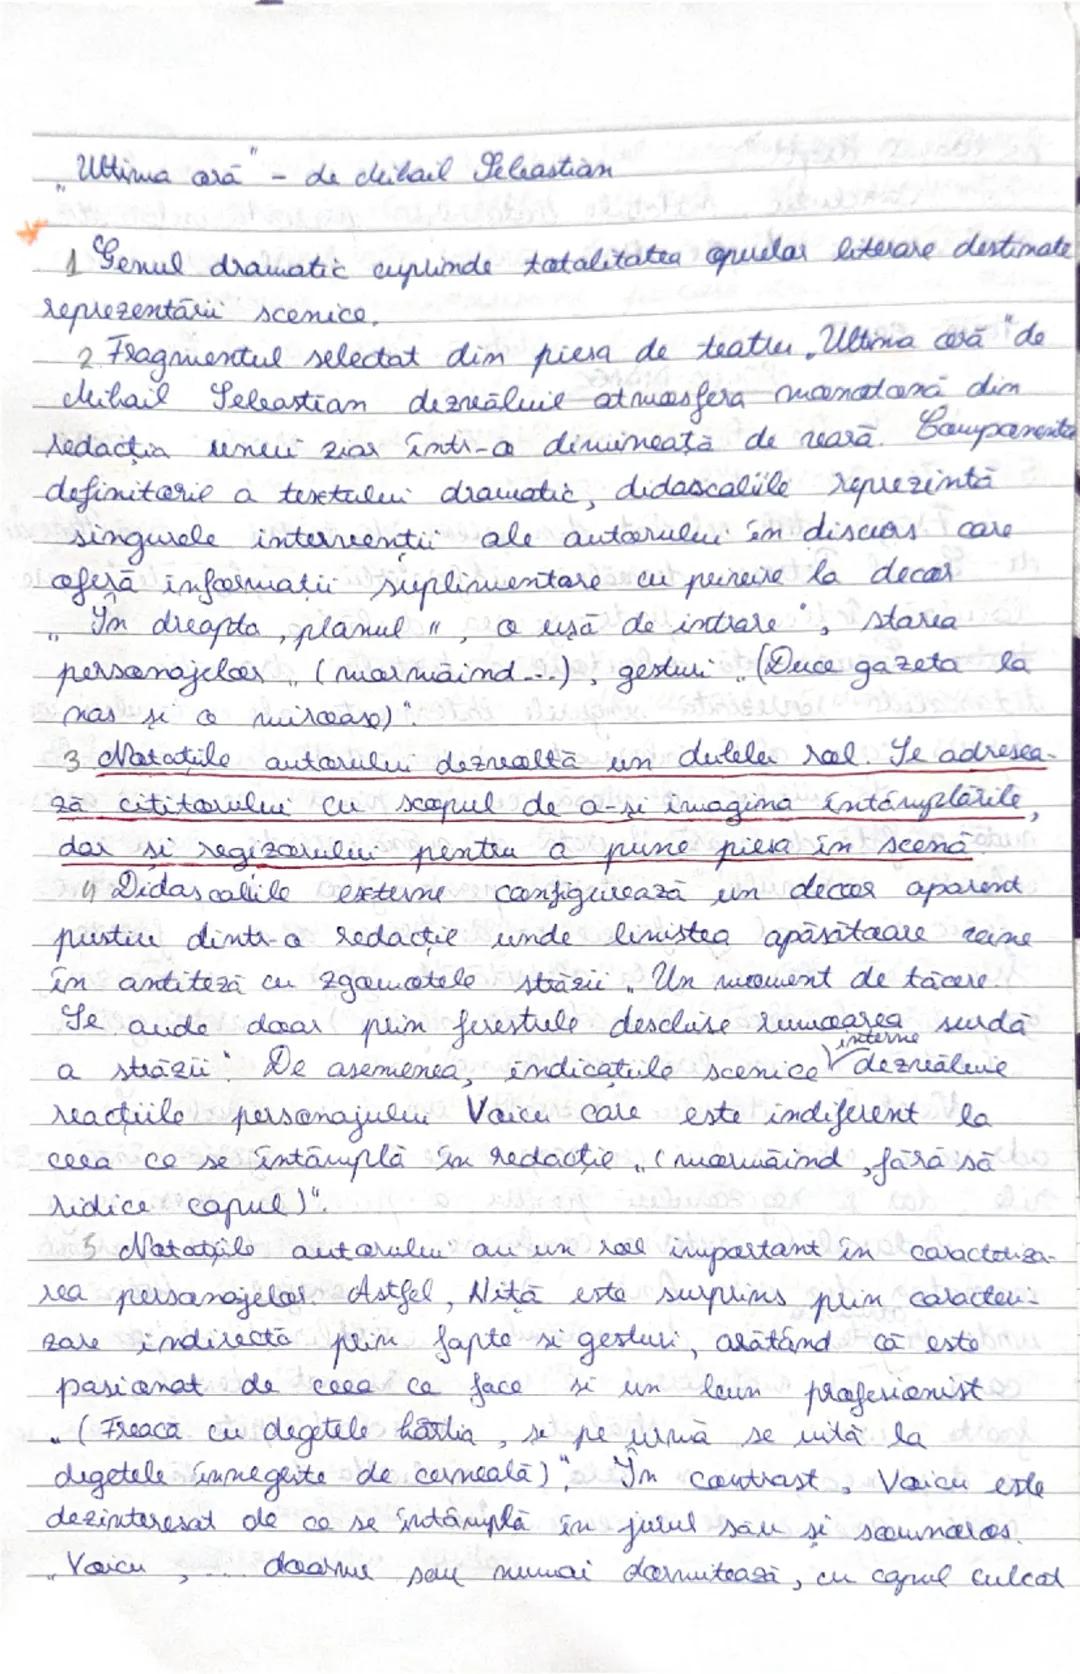 „Ultima oră" - de Mihail Sebastian
1 Genul dramatic cuprinde totalitatea operelor literare destinate
reprezentării scenice.
2. Fragmentul selectat din piesa de teatru „Ultima oră" de
Mihail Sebastian dezvăluie atmosfera monotonă din
redacția unui ziar într-o dimineață de vară. Componenta
definitorie a textului dramatic, didascaliile reprezintă
singurele intervenții ale autorului în discurs care
oferă informații suplimentare cu privire la decor
„În dreapta, planul II, o ușă de intrare", starea
personajelor „(mormăind...), gesturi „(Duce gazeta la
nas și o miroase)".
3 Notațiile autorului dezvoltă un dublu rol. Se adresea-
ză cititorului cu scopul de a-și imagina întâmplările,
dar și regizorului pentru a pune piesa în scenă.
4 Didascaliile externe configurează un decor aparent
pustiu dintr-o redacție unde liniștea apăsătoare vine
în antiteză cu zgomotele străzii „Un moment de tăcere.
Se aude doar prin ferestrele deschise rumoarea surdă
a străzii". De asemenea, indicațiile scenice interne dezvăluie
reacțiile personajului Voicu care este indiferent la
ceea ce se întâmplă în redacție „(mormăind, fără să
ridice capul)".
5 Notațiile autorului au un rol important în caracteriza-
rea personajelor. Astfel, Niță este surprins prin caracteri-
zare indirectă prin fapte și gesturi, arătând că este
pasionat de ceea ce face și un bun profesionist
„(Freacă cu degetele hârtia, și pe urmă se uită la
degetele înnegrite de cerneală)". În contrast, Voicu este
dezinteresat de ce se întâmplă în jurul său și somnoros.
„Voicu, ... doarme sau numai dormitează, cu capul culcat